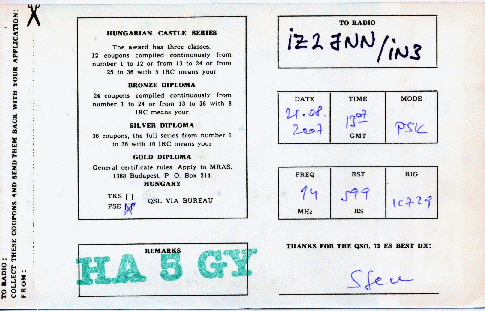 TO RADIO :
COLLECT THESE COUPONS AND SEND THEM BACK WITH YOUR APPLICATION:
FROM :
HUNGARIAN CASTLE SERIES
The award has three classes.
12 coupons compiled continuously from
number 1 to 12 or from 13 to 24 or from
25 to 36 with 5 IRC means your
BRONZE DIPLOMA
24 coupons compiled continuously from
number 1 to 24 or from 13 to 36 with 8
IRC means your
SILVER DIPLOMA
36 coupons, the full series from number 1
to 36 with 10 IRC means your
GOLD DIPLOMA
General certificate rules Apply to MRAS.
1368 Budapest, P. O. Box 214.
HUNGARY
TKS
PSE
QSL VIA BUREAU
REMARKS
HA 5 GY
TO RADIO
IZ2JNN/IN3
DATE TIME MODE
21.08.
2007
1307
GMT
PSK
FREQ RST RIG
14 599 IC729
MHz RS
THANKS FOR THE QSO, 73 ES BEST DX: